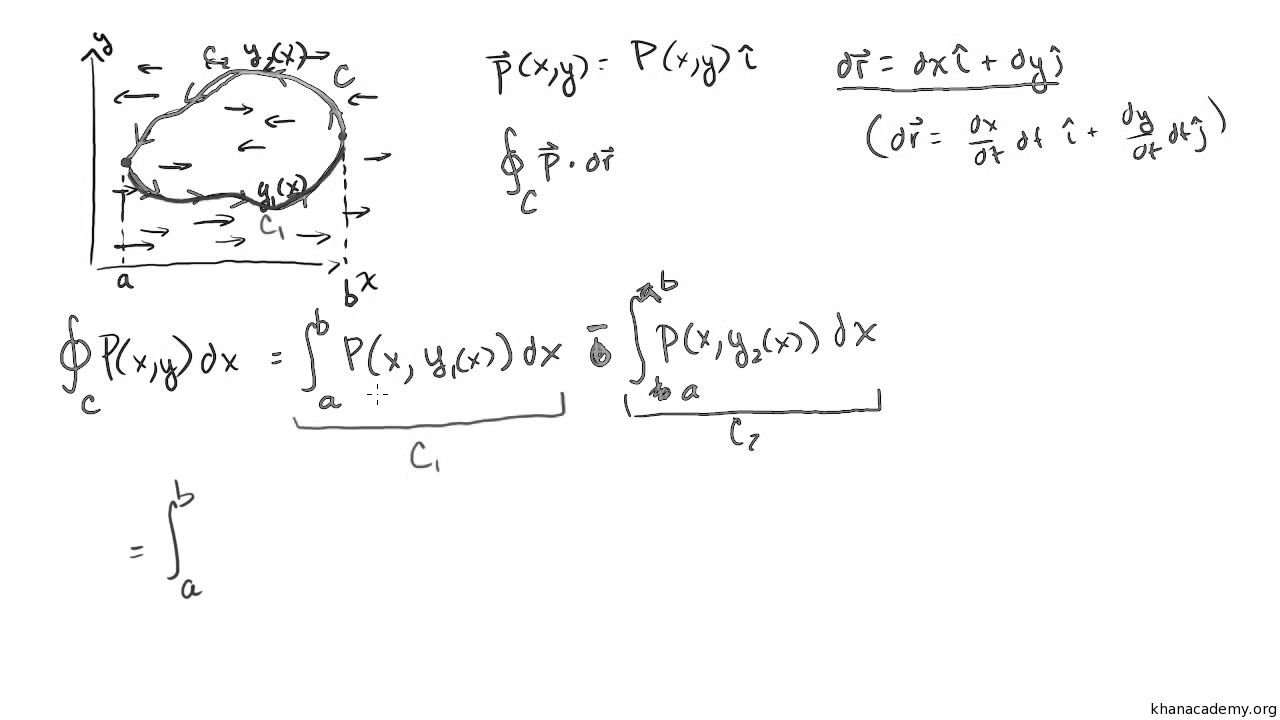 y
C₂ y₂(x)
C
y₁(x)
C₁
a
b
x
P⃗(x,y) = P(x,y) î
∮_C P⃗ · dr⃗
dr⃗ = dx î + dy ĵ
(dr⃗ = dx/dt dt î + dy/dt dt ĵ)
∮_C P(x,y) dx = ∫_a^b P(x, y₁(x)) dx − ∫_a^b P(x, y₂(x)) dx
C₁
C₂
= ∫_a^b
khanacademy.org